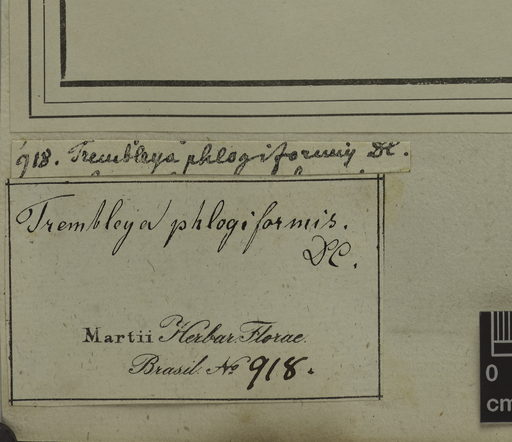 918. Trembleya phlogiformis DC.
Trembleya phlogiformis.
DC.
Martii Herbar. Florae.
Brasil. No 918.
0
cm